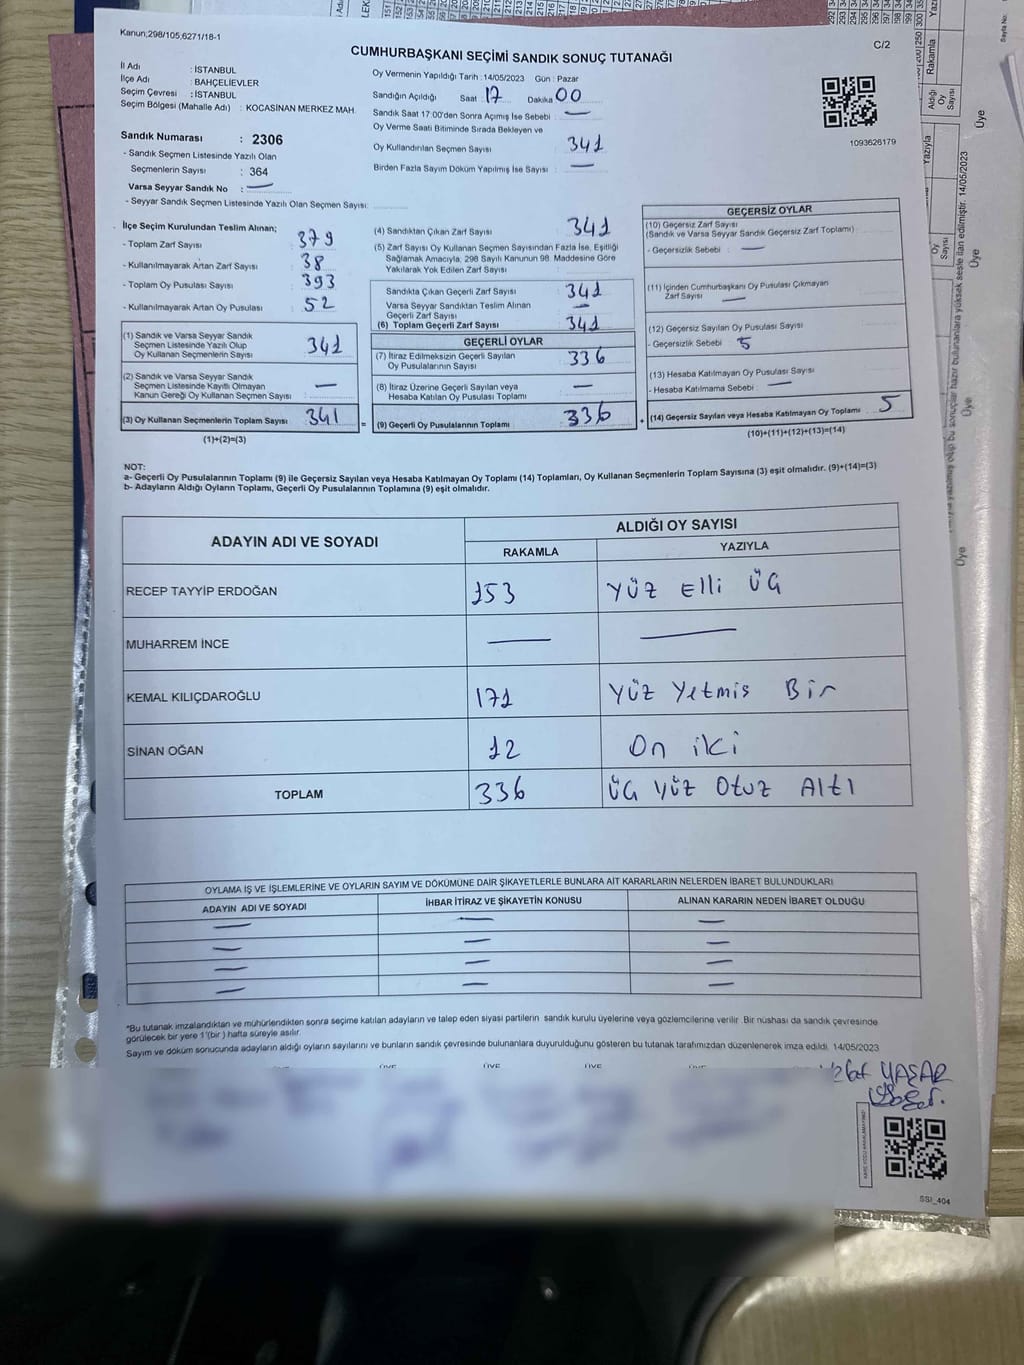 Kanun;298/105,6271/18-1
C/2
CUMHURBAŞKANI SEÇİMİ SANDIK SONUÇ TUTANAĞI
İl Adı : İSTANBUL
İlçe Adı : BAHÇELİEVLER
Seçim Çevresi : İSTANBUL
Seçim Bölgesi (Mahalle Adı) : KOCASİNAN MERKEZ MAH.
Sandık Numarası : 2306
- Sandık Seçmen Listesinde Yazılı Olan
Seçmenlerin Sayısı : 364
Varsa Seyyar Sandık No : —
- Seyyar Sandık Seçmen Listesinde Yazılı Olan Seçmen Sayısı:
Oy Vermenin Yapıldığı Tarih :14/05/2023 Gün : Pazar
Sandığın Açıldığı Saat 17 Dakika 00
Sandık Saat 17:00'den Sonra Açmış İse Sebebi : —
Oy Verme Saati Bitiminde Sırada Bekleyen ve
Oy Kullandırılan Seçmen Sayısı : 341
Birden Fazla Sayım Döküm Yapılmış İse Sayısı : —
1093626179
İlçe Seçim Kurulundan Teslim Alınan;
- Toplam Zarf Sayısı : 379
- Kullanılmayarak Artan Zarf Sayısı : 38
- Toplam Oy Pusulası Sayısı : 393
- Kullanılmayarak Artan Oy Pusulası : 52
(1) Sandık ve Varsa Seyyar Sandık
Seçmen Listesinde Yazılı Olup
Oy Kullanan Seçmenlerin Sayısı : 341
(2) Sandık ve Varsa Seyyar Sandık
Seçmen Listesinde Kayıtlı Olmayan
Kanun Gereği Oy Kullanan Seçmen Sayısı : —
(3) Oy Kullanan Seçmenlerin Toplam Sayısı : 341
(1)+(2)=(3)
(4) Sandıktan Çıkan Zarf Sayısı : 341
(5) Zarf Sayısı Oy Kullanan Seçmen Sayısından Fazla İse, Eşitliği
Sağlamak Amacıyla, 298 Sayılı Kanunun 98. Maddesine Göre
Yakılarak Yok Edilen Zarf Sayısı :
Sandıkta Çıkan Geçerli Zarf Sayısı : 341
Varsa Seyyar Sandıktan Teslim Alınan
Geçerli Zarf Sayısı : —
(6) Toplam Geçerli Zarf Sayısı : 341
GEÇERLİ OYLAR
(7) İtiraz Edilmeksizin Geçerli Sayılan
Oy Pusulalarının Sayısı : 336
(8) İtiraz Üzerine Geçerli Sayılan veya
Hesaba Katılan Oy Pusulası Toplamı : —
= (9) Geçerli Oy Pusulalarının Toplamı : 336
GEÇERSİZ OYLAR
(10) Geçersiz Zarf Sayısı
(Sandık ve Varsa Seyyar Sandık Geçersiz Zarf Toplamı) :
- Geçersizlik Sebebi : —
(11) İçinden Cumhurbaşkanı Oy Pusulası Çıkmayan
Zarf Sayısı : —
(12) Geçersiz Sayılan Oy Pusulası Sayısı :
- Geçersizlik Sebebi : 5
(13) Hesaba Katılmayan Oy Pusulası Sayısı :
- Hesaba Katılmama Sebebi : —
+ (14) Geçersiz Sayılan veya Hesaba Katılmayan Oy Toplamı : 5
(10)+(11)+(12)+(13)=(14)
NOT:
a- Geçerli Oy Pusulalarının Toplamı (9) ile Geçersiz Sayılan veya Hesaba Katılmayan Oy Toplamı (14) Toplamları, Oy Kullanan Seçmenlerin Toplam Sayısına (3) eşit olmalıdır. (9)+(14)=(3)
b- Adayların Aldığı Oyların Toplamı, Geçerli Oy Pusulalarının Toplamına (9) eşit olmalıdır.
ADAYIN ADI VE SOYADI
ALDIĞI OY SAYISI
RAKAMLA YAZIYLA
RECEP TAYYİP ERDOĞAN 153 YÜZ Elli ÜÇ
MUHARREM İNCE — —
KEMAL KILIÇDAROĞLU 171 YÜZ Yetmis Bir
SİNAN OĞAN 12 On iki
TOPLAM 336 ÜÇ YÜZ Otuz Altı
OYLAMA İŞ VE İŞLEMLERİNE VE OYLARIN SAYIM VE DÖKÜMÜNE DAİR ŞİKAYETLERLE BUNLARA AİT KARARLARIN NELERDEN İBARET BULUNDUKLARI
ADAYIN ADI VE SOYADI İHBAR İTİRAZ VE ŞİKAYETİN KONUSU ALINAN KARARIN NEDEN İBARET OLDUĞU
— — —
— — —
— — —
— — —
*Bu tutanak imzalandıktan ve mühürlendikten sonra seçime katılan adayların ve talep eden siyasi partilerin sandık kurulu üyelerine veya gözlemcilerine verilir. Bir nüshası da sandık çevresinde
görülecek bir yere 1'(bir ) hafta süreyle asılır.
Sayım ve döküm sonucunda adayların aldığı oyların sayılarını ve bunların sandık çevresinde bulunanlara duyurulduğunu gösteren bu tutanak tarafımızdan düzenlenerek imza edildi. 14/05/2023
ÜYE ÜYE ÜYE
YAŞAR
SSI_404
Sayfa No:
Rakamla
Aldığı
Oy
Sayısı
Yazıyla
Oy
Sayısı
Üye
Üye
Üye
Üye